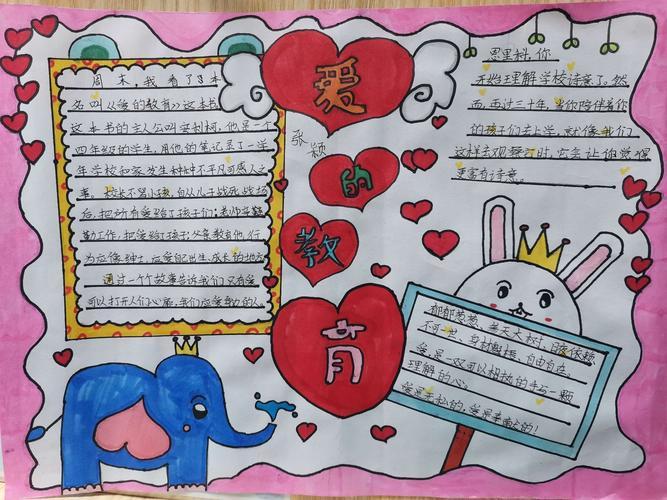 爱
的
教
育
张颖
周末，我看了3本
名叫《爱的教育》这本书
这本书的主人公叫安利柯，他是一个
四年级的学生，用他的笔记录了一学
年学校和家发生种种不平凡可感人之
事。校长不哭小孩，自从儿子战死战场
后，把所有爱给了孩子们；老师辛勤
勤工作，把爱给了孩子；父亲教育他，行
为应像绅士，应爱自己出生、成长的地方
通过一个个故事告诉我们，只有爱
可以打开人们心扉，我们应爱帮助的人。
恩里科，你
开始理解学校诗意了。然
而，再过三十年，当你陪伴着你
的孩子们去上学，就像我们
这样去观察时，它会让你觉得
更富有诗意。
郁郁葱葱，参天大树，
不可，自由自在。
爱是一双可以相拥的手与一颗
理解的心。